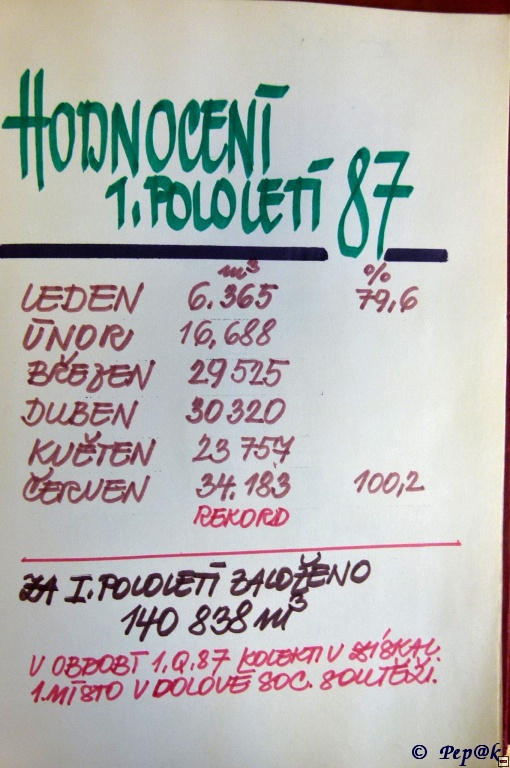 HODNOCENÍ
1. POLOLETÍ 87
m³ %
LEDEN 6.365 79,6
ÚNOR 16,688
BŘEZEN 29525
DUBEN 30320
KVĚTEN 23757
ČERVEN 34.183 100,2
REKORD
ZA I. POLOLETÍ ZALOŽENO
140 838 m³
V OBDOBÍ 1.Q.87 KOLEKTIV ZÍSKAL
1.MÍSTO V DOLOVÉ SOC. SOUTĚŽI.
© Pep@k